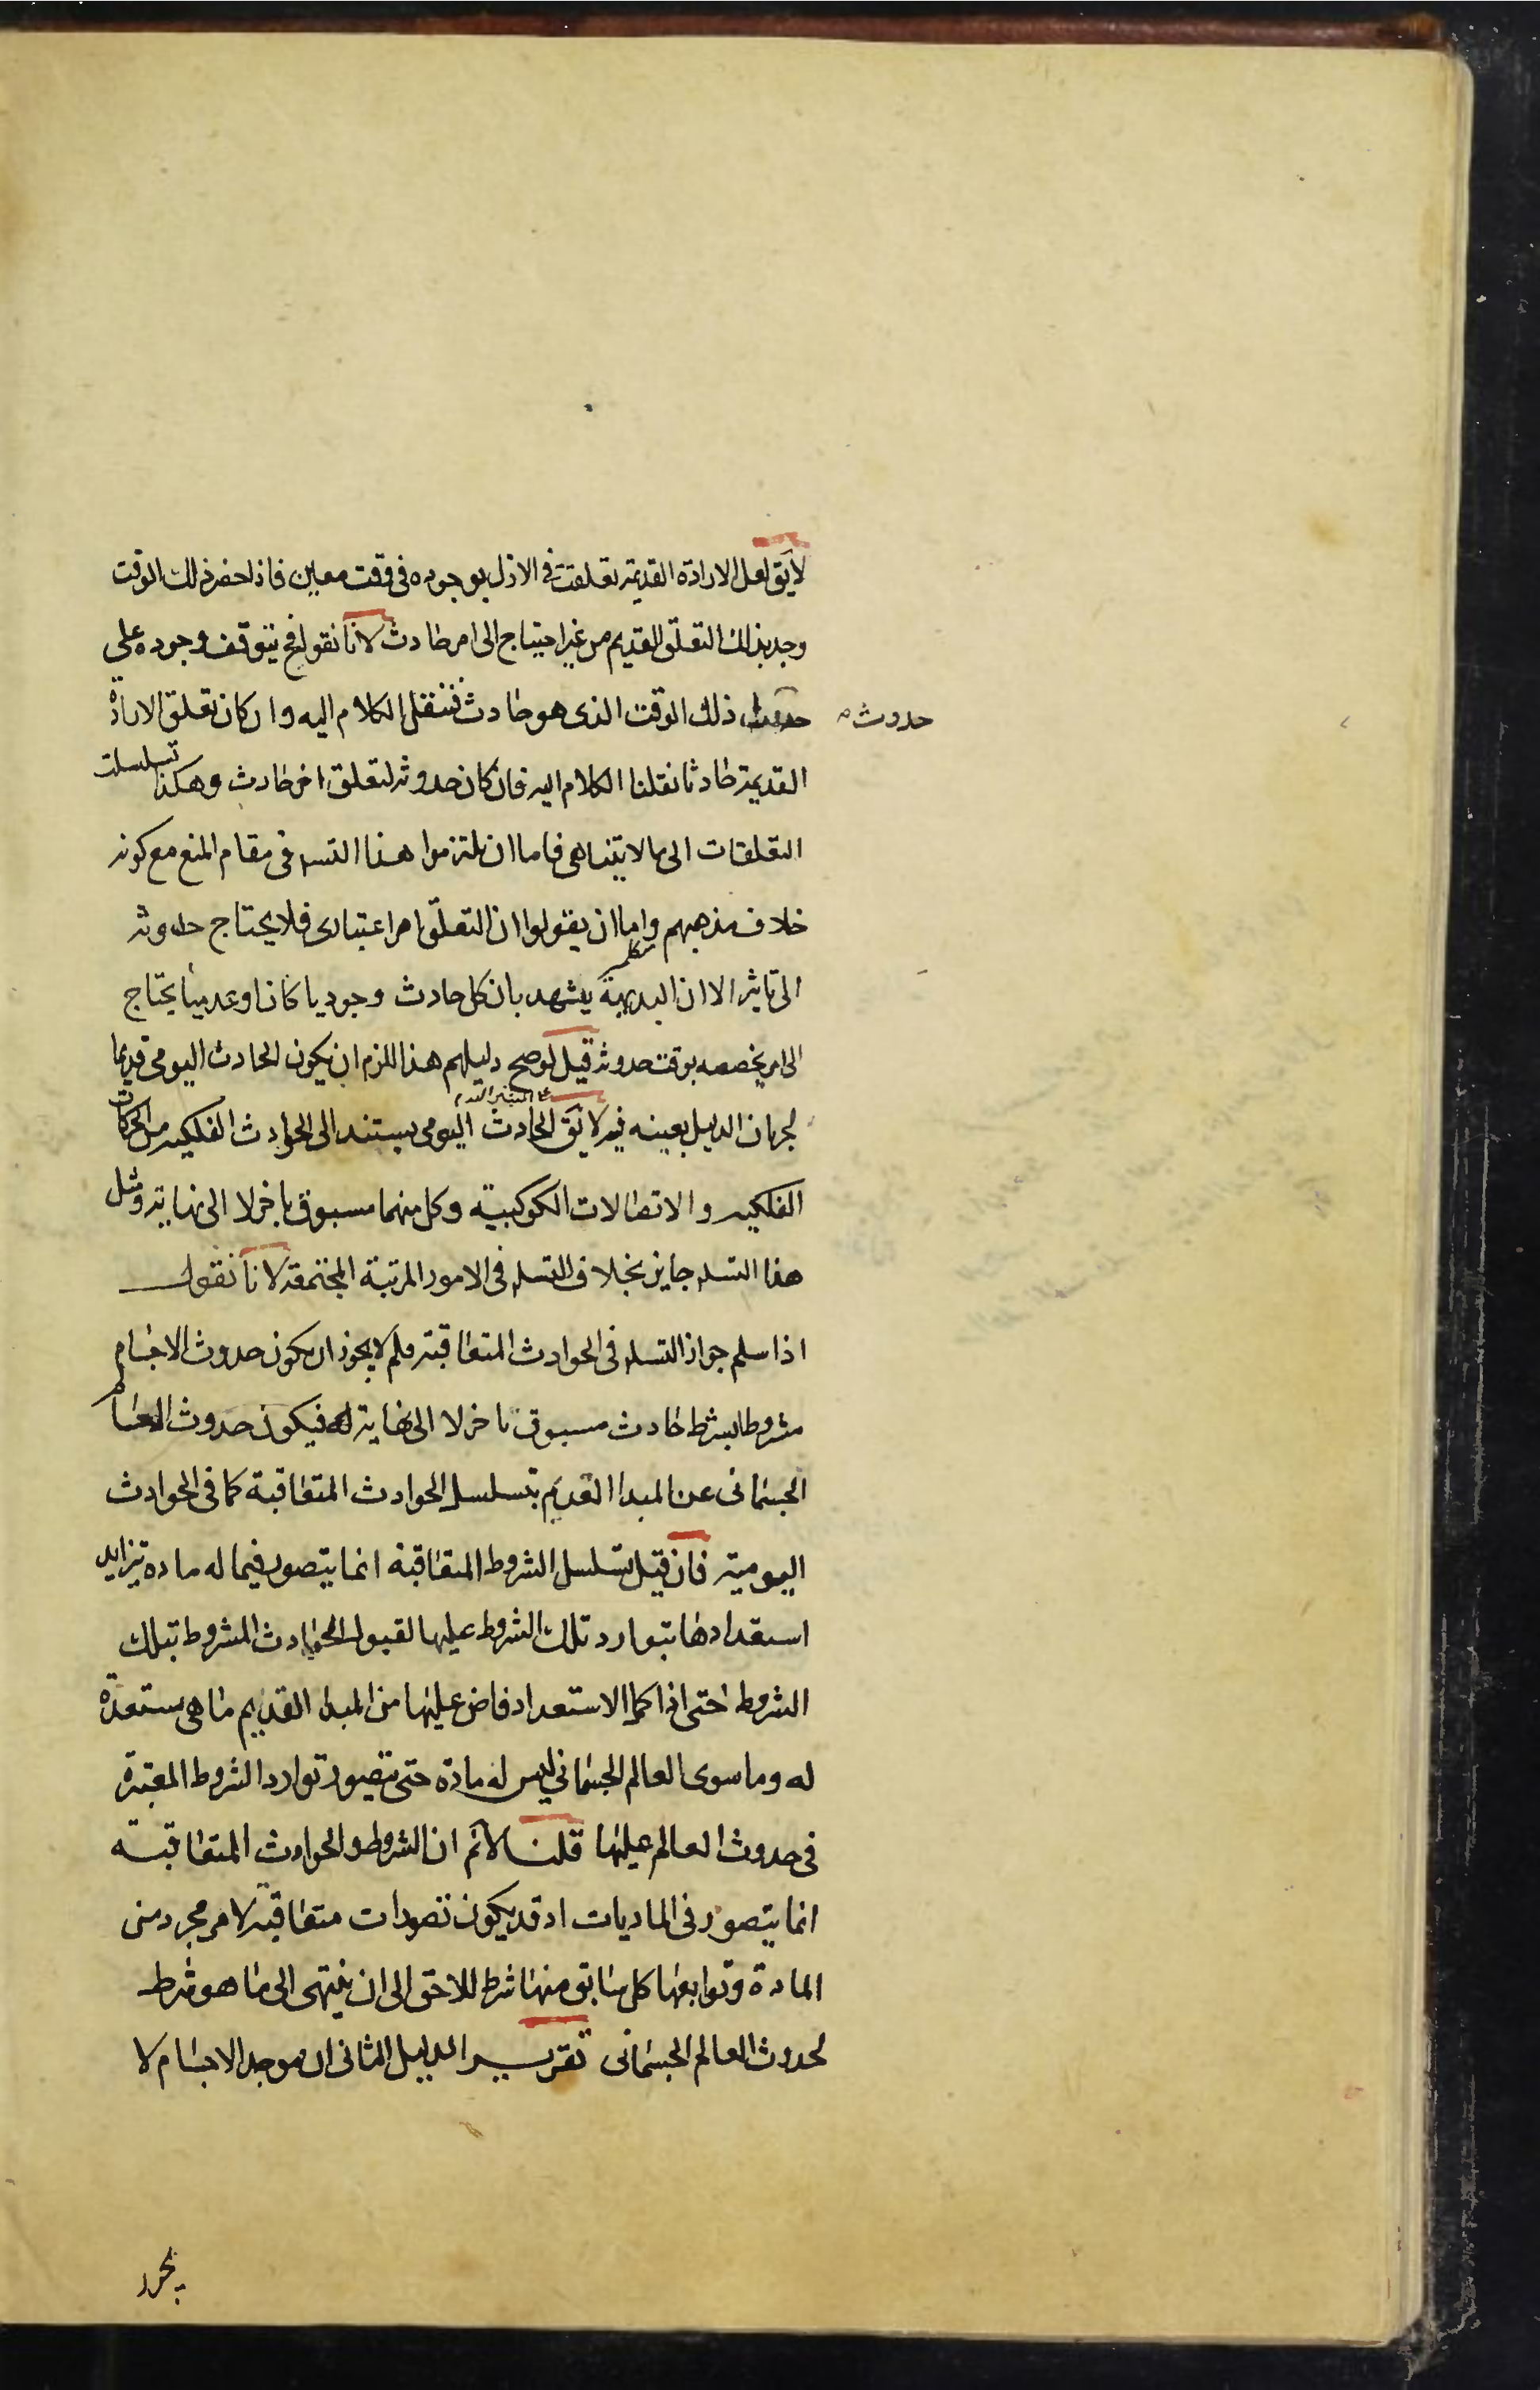 لايق لعل الارادة القديمة تعلقت في الازل بوجوده في وقت معين فاذا حضر ذلك الوقت
وجد بذلك التعلق القديم من غير احتياج الى امر حادث لانا نقول فح يتوقف وجوده على
حدوث ذلك الوقت الذى هو حادث فننقل الكلام اليه وان كان تعلق الارادة
حدوث
القديمة حادثا نقلنا الكلام اليه فان كان حدوثه لتعلق اخر حادث وهكذا تسلسلت
التعلقات الى ما لا يتناهى فاما ان يلتزموا هذا التسه في مقام المنع مع كونه
خلاف مذهبهم واما ان يقولوا ان التعلق امر اعتبارى فلا يحتاج حدوثه
الى تاثير الا ان البديهة يشهد بان كل حادث وجوديا كان او عدميا يحتاج
الى امر يخصصه بوقت حدوثه قيل لو صح دليلهم هذا للزم ان يكون الحادث اليومى قديما
لجريان الدليل بعينه فيه لايق الحادث اليومى يستند الى الحوادث الفلكيه من الحركات
الفلكيه والاتصالات الكوكبية وكل منهما مسبوق باخر لا الى نهاية ومثل
هذا التسه جايز بخلاف التسه في الامور المرتبة المجتمعة لانا نقول
اذا سلم جواز التسه في الحوادث المتعاقبة فلم لا يجوز ان يكون حدوث الاجسام
مشروطا بشرط حادث مسبوق باخر لا الى نهاية له فيكون حدوث العالم
الجسمانى عن المبدا القديم بتسلسل الحوادث المتعاقبة كما في الحوادث
اليومية فان قيل تسلسل الشروط المتعاقبة انما يتصور فيما له مادة يتزايد
استعدادها بتوارد تلك الشروط عليها لقبول الحوادث المشروط بتلك
الشروط حتى اذا كمل الاستعداد فاض عليها من المبدا القديم ما هى مستعدة
له وما سوى العالم الجسمانى ليس له مادة حتى يتصور توارد الشروط المعتبرة
في حدوث العالم عليها قلنا لانم ان الشروط والحوادث المتعاقبة
انما يتصور في الماديات اذ قد يكون تصورات متعاقبة لامر مجرد من
المادة وتوابعها كل سابق منها شرط للاحق الى ان ينتهى الى ما هو شرط
لحدوث العالم الجسمانى تقرير الدليل الثانى ان موجد الاجسام لا